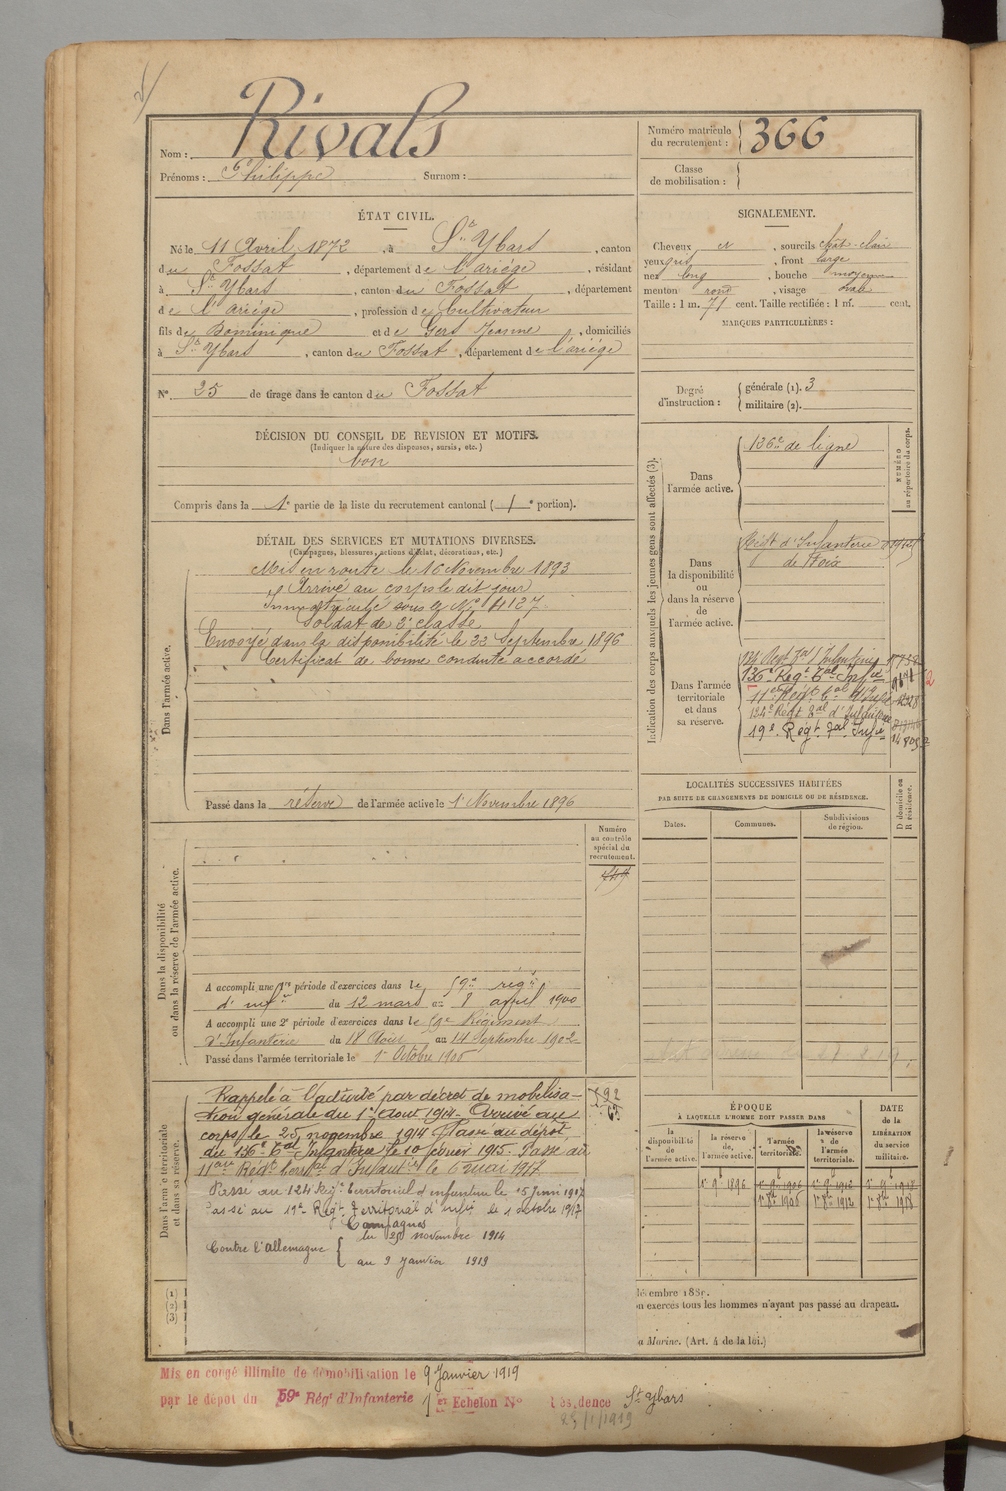 Nom : Rivals
Prénoms : Philippe Surnom :
Numéro matricule du recrutement : 366
Classe de mobilisation :
ÉTAT CIVIL.
Né le 11 Avril 1872, à St Ybars, canton
du Fossat, département de l'ariége, résidant
à St Ybars, canton du Fossat, département
de l'ariége, profession de Cultivateur
fils de Dominique et de Gers Jeanne, domiciliés
à St Ybars, canton du Fossat, département de l'ariége
N° 25 de tirage dans le canton du Fossat
SIGNALEMENT.
Cheveux et, sourcils chât-clair
yeux gris, front large
nez long, bouche moyenne
menton rond, visage ovale
Taille : 1 m. 71 cent. Taille rectifiée : 1 m. cent.
MARQUES PARTICULIÈRES :
Degré d'instruction : générale (1). 3
militaire (2).
DÉCISION DU CONSEIL DE REVISION ET MOTIFS.
(Indiquer la nature des dispenses, sursis, etc.)
bon
Compris dans la 1e partie de la liste du recrutement cantonal ( 1e portion).
DÉTAIL DES SERVICES ET MUTATIONS DIVERSES.
(Campagnes, blessures, actions d'éclat, décorations, etc.)
Dans l'armée active.
Mis en route le 16 Novembre 1893
Arrivé au corps le dit jour
Immatriculé sous le N° 4127
Soldat de 2e classe
Envoyé dans la disponibilité le 22 Septembre 1896
Certificat de bonne conduite accordé
Passé dans la réserve de l'armée active le 1r Novembre 1896
Indication des corps auxquels les jeunes gens sont affectés (3).
NUMÉRO au répertoire du corps.
Dans l'armée active.
136e de ligne
Dans la disponibilité ou dans la réserve de l'armée active.
Régt d'Infanterie
de Foix
Dans l'armée territoriale et dans sa réserve.
134 Régt Tal d'Infanterie
136e Régt Tal Infie
11e Régt Tal
124e Régt Tal d'Infanterie
19e Régt Tal Infie
LOCALITÉS SUCCESSIVES HABITÉES
PAR SUITE DE CHANGEMENTS DE DOMICILE OU DE RÉSIDENCE.
Dates. Communes. Subdivisions de région. D domicile ou R résidence.
Dans la disponibilité ou dans la réserve de l'armée active.
Numéro au contrôle spécial du recrutement.
A accompli une 1re période d'exercices dans le 59e régt
d'infie du 12 mars au 8 avril 1900
A accompli une 2e période d'exercices dans le 59e Régiment
d'Infanterie du 18 Août au 14 Septembre 1902
Passé dans l'armée territoriale le 1r Octobre 1906
Dans l'armée territoriale et dans sa réserve.
Rappelé à l'activité par décret de mobilisa-
tion générale du 1er Aout 1914. Arrivé au
corps le 25 novembre 1914 Passé au dépôt
du 136e Tal Infanterie le 10 février 1915. Passé au
11eme Régt territal d'Infantie le 6 mai 1917.
Passé au 124 Régt territorial d'infanterie le 15 Juin 1917
Passé au 19e Régt Territorial d'Infie le 1 octobre 1917
Campagnes
Contre l'Allemagne { du 25 novembre 1914
au 9 Janvier 1919
792
ÉPOQUE
À LAQUELLE L'HOMME DOIT PASSER DANS
la disponibilité de l'armée active. la réserve de l'armée active. l'armée territoriale. la réserve de l'armée territoriale.
DATE de la LIBÉRATION du service militaire.
1r 9e 1896 1r 9e 1906 1r 9e 1912 1r 9e 1918
1r 8bre 1906 1r 8bre 1912 1r 8bre 1918
(1)
(2)
(3)
on exercés tous les hommes n'ayant pas passé au drapeau.
a Marine. (Art. 4 de la loi.)
Mis en congé illimité de démobilisation le 9 Janvier 1919
par le dépôt du 59e Régt d'Infanterie 1er Echelon N° Résidence St Ybars
23/1/1919